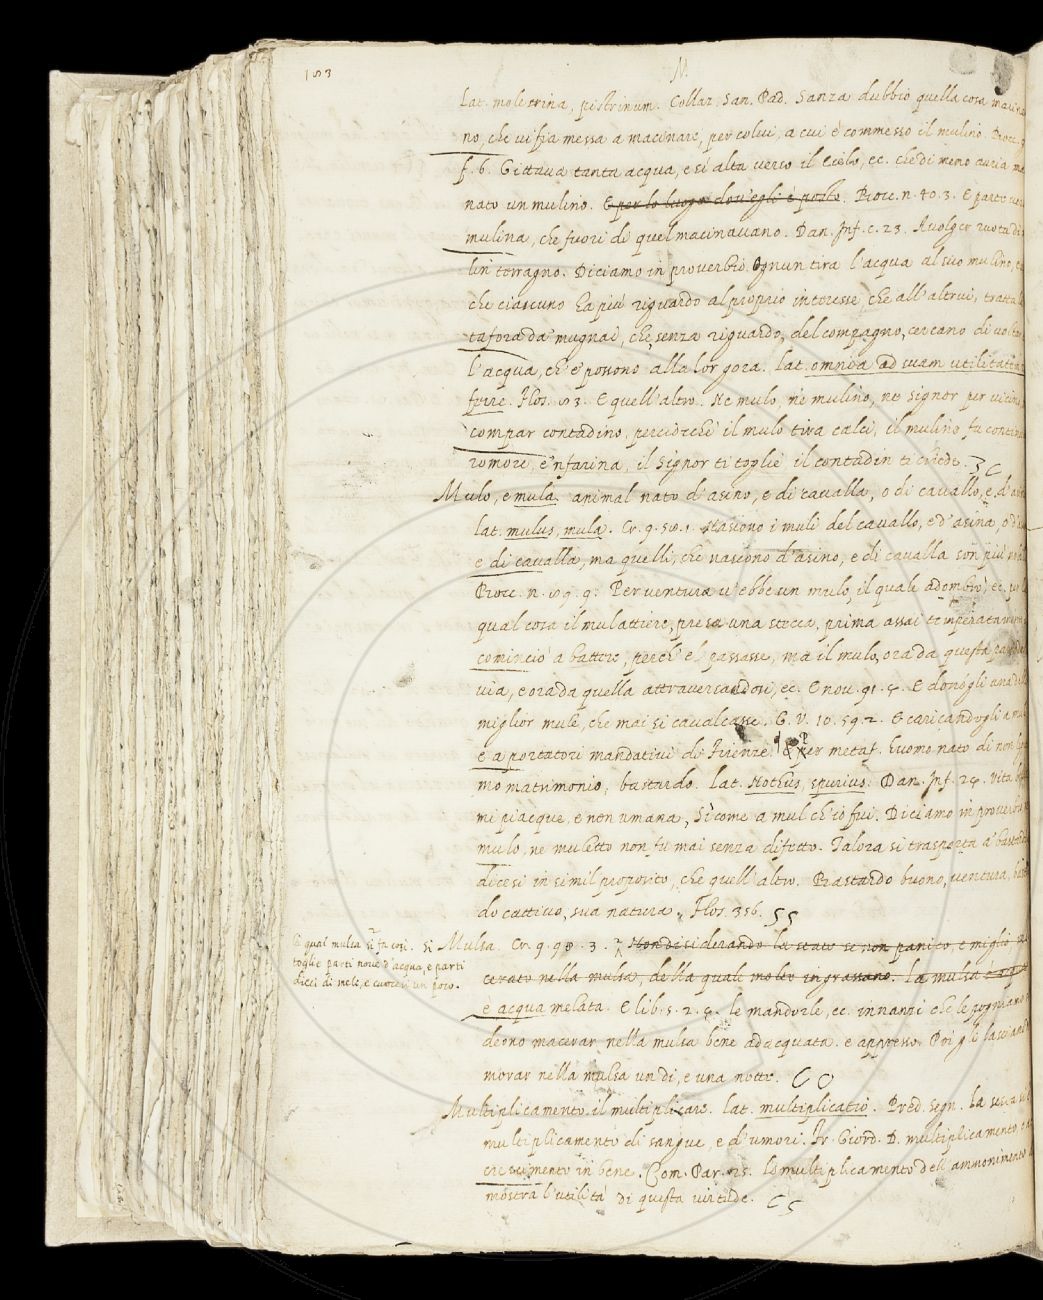 153
M
Lat. moletrina, pistrinum. Collaz. San. Pad. Sanza dubbio quella cosa
no, che vi sia messa a macinare, per colui, a cui è commesso il mulino. Bocc.
f. 6. Gittava tanta acqua, e sì alta verso il Cielo, ec. che di meno avria
nato un mulino. E per lo luogo dov'egli è posto. Bocc. n. 40. 3. E parte
mulina, che fuori di quel macinavano. Dan. Inf. c. 23. A volger ruota di
lin terragno. Diciamo in proverbio. Ognun tira l'acqua al suo mulino,
che ciascuno ha più riguardo al proprio interesse che all'altrui, tratta
tafora da mugnai, che senza riguardo, del compagno, cercano di
l'acqua, ch'e possono alla lor gora. Lat. omnia ad suam utilitatem
Flos. 53. E quell'altro. Ne mulo, ne mulino, ne signor per vicino,
compar contadino, perciocchè il mulo tira calci, il mulino fa
romore, e 'nfarina, il Signor ti toglie il contadin ti chiede.
Mulo, e mula. animal nato d'asino, e di cavalla, o di cavallo, e d'
lat. mulus, mula. Cr. 9. 58. 1. Nascono i muli del cavallo, ed'asina, o
e di cavalla, ma quelli, che nascono d'asino, e di cavalla son più
Bocc. n. 89. 9. Per ventura v'ebbe un mulo, il quale adombrò, ec.
qual cosa il mulattiere, presa una stecca, prima assai temperatamente
cominciò a battere, perch'e' passasse, ma il mulo, ora da questa
via, e ora da quella attraversandosi, ec. E nov. 91. 4. E donògli una
miglior mule, che mai si cavalcasse. G. V. 10. 59. 2. E caricandogli a
e a portatori mandativi di Firenze. Per metaf. huomo nato di non
mo matrimonio, bastardo. Lat. Nothus, spurius. Dan. Inf. 24. Vita
mi piacque, e non umana, Sì come a mul ch'io fui. Diciamo in
mulo, ne muletto non fu mai senza difetto. Talora si trasporta a
dicesi in simil proposito, che quell'altro. Bastardo buono, ventura,
do cattivo, sua natura. Flos. 356.
Mulsa. Cr. 9. 98. 3. Non desiderando lo stato se non panico, e miglio
la qual mulsa si fa così. Si
toglie parti nove d'acqua, e parti
dieci di mele, e cuocesi un poco.
nella mulsa, della quale molto ingrassano. La mulsa
è acqua melata. E lib. 5. 2. 4. le mandorle, ec. innanzi che le pogniamo
deono macerar nella mulsa bene adacquata. e appresso. Poi gli
morar nella mulsa un dì, e una notte.
Multiplicamento. il multiplicare. Lat. multiplicatio. Pred. Segn. La
multiplicamento di sangue, e d'umori. Fr. Giord. D. multiplicamento,
crescimento in bene. Com. Par. 25. Lo multiplicamento dell'ammonimento
mostra l'utilità di questa virtude.